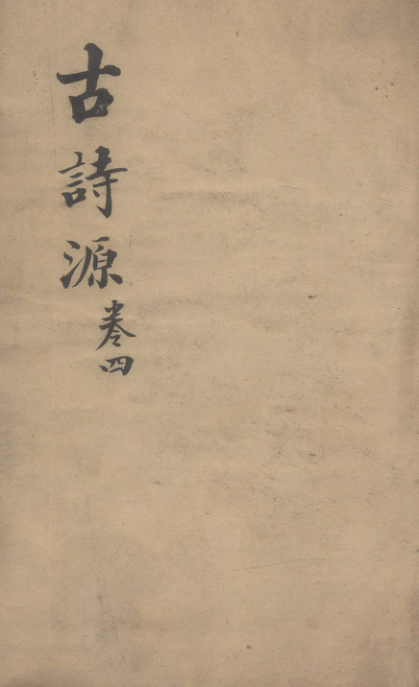 古詩源
卷四